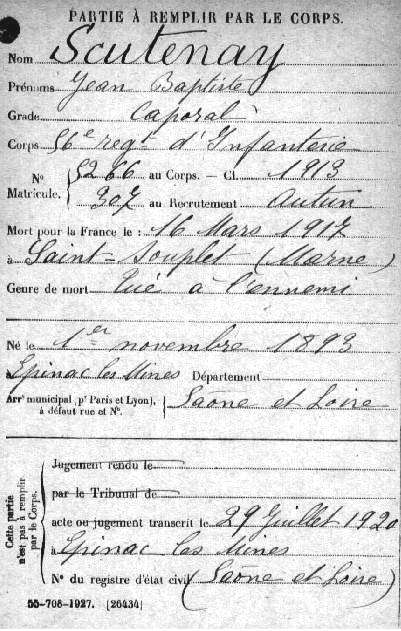 PARTIE À REMPLIR PAR LE CORPS.
Nom Scutenay
Prénoms Jean Baptiste
Grade Caporal
Corps 56e regt d'Infanterie
N° 5266 au Corps. — Cl. 1913
Matricule. 307 au Recrutement Autun
Mort pour la France le : 16 Mars 1917
à Saint-Souplet (Marne)
Genre de mort Tué à l'ennemi
Né le 1er novembre 1893
à Epinac les Mines Département
Arrt municipal (pr Paris et Lyon), à défaut rue et N°. Saône et Loire
Cette partie n'est pas à remplir par le Corps.
Jugement rendu le
par le Tribunal de
acte ou jugement transcrit le 29 Juillet 1920
à Epinac les Mines
N° du registre d'état civil (Saône et Loire)
55-708-1927. [26434]